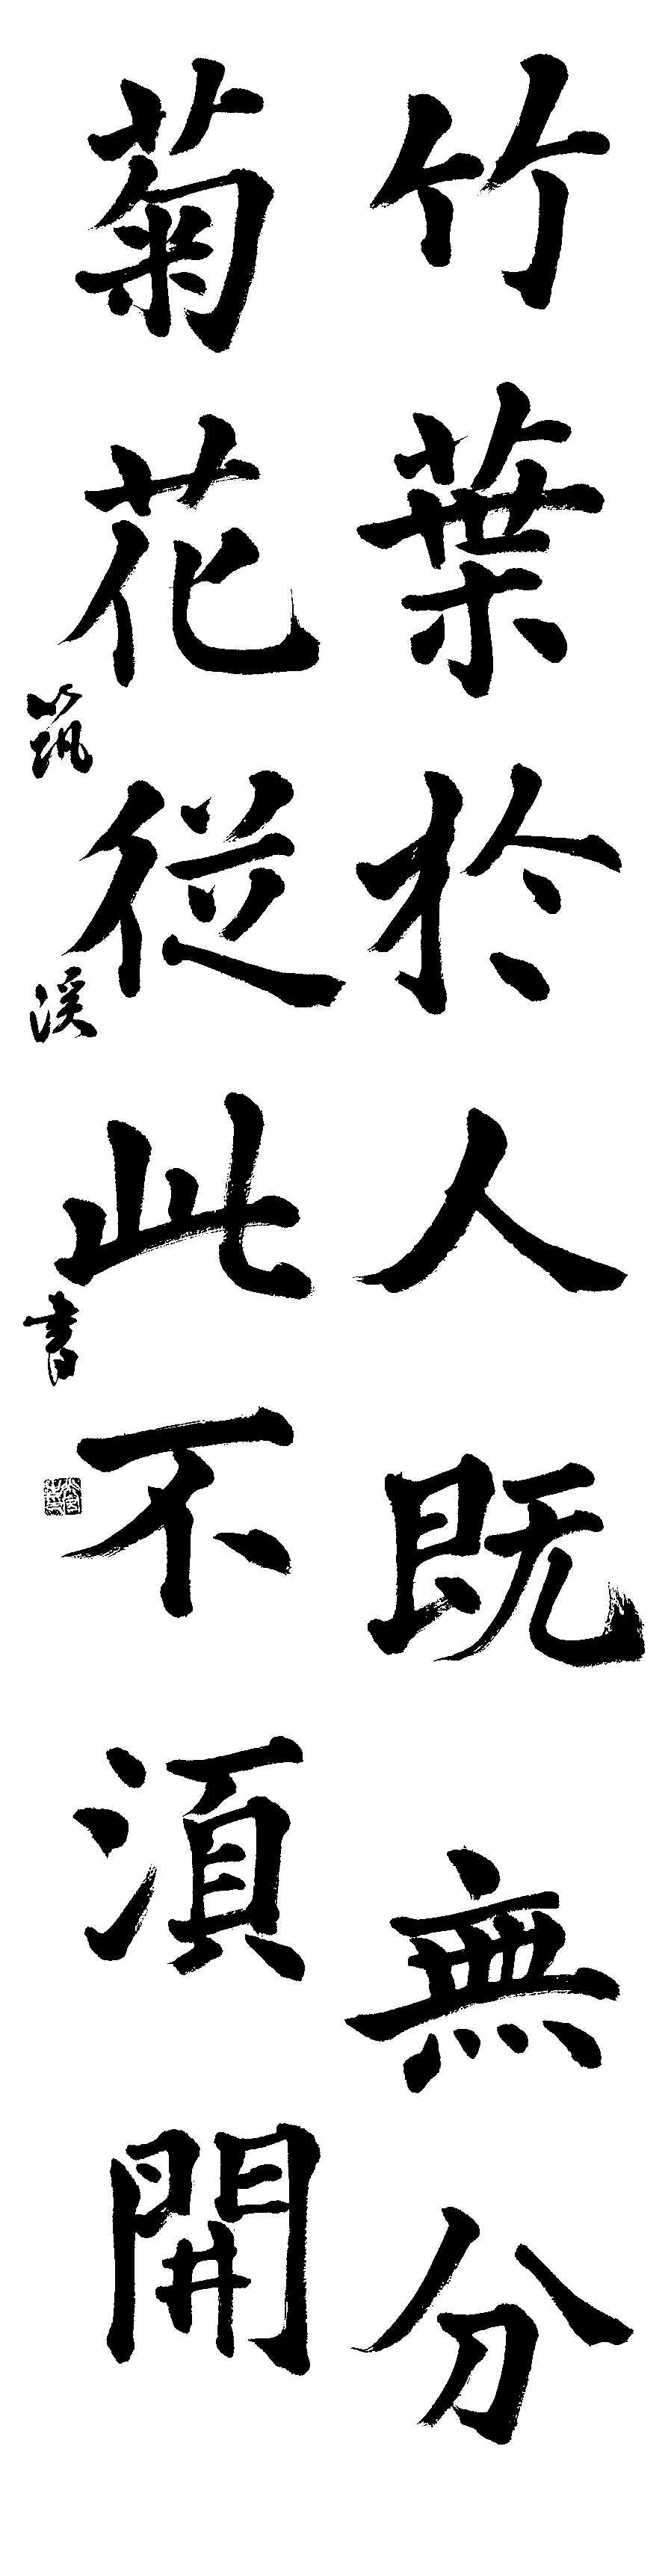 竹葉於人既無分
菊花從此不須開
筑溪書